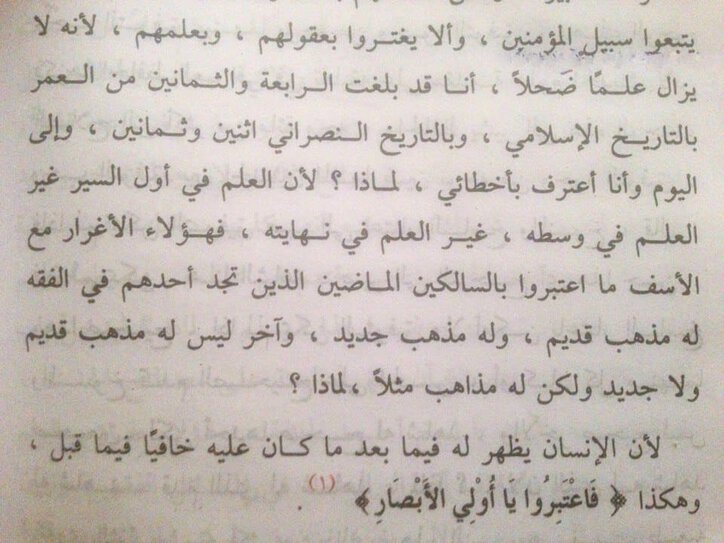 يتبعوا سبيل المؤمنين ، وألا يغتروا بعقولهم ، وبعلمهم ، لأنه لا
يزال علمًا ضَحلاً ، أنا قد بلغت الرابعة والثمانين من العمر
بالتاريخ الإسلامي ، وبالتاريخ النصراني اثنين وثمانين ، وإلى
اليوم وأنا أعترف بأخطائي ، لماذا ؟ لأن العلم في أول السير غير
العلم في وسطه ، غير العلم في نهايته ، فهؤلاء الأغرار مع
الأسف ما اعتبروا بالسالكين الماضين الذين تجد أحدهم في الفقه
له مذهب قديم ، وله مذهب جديد ، وآخر ليس له مذهب قديم
ولا جديد ولكن له مذاهب مثلاً ،لماذا ؟
لأن الإنسان يظهر له فيما بعد ما كان عليه خافيًا فيما قبل ،
وهكذا ﴿ فَاعْتَبِرُوا يا أُولْي الأَبْصارِ ﴾ (١) .